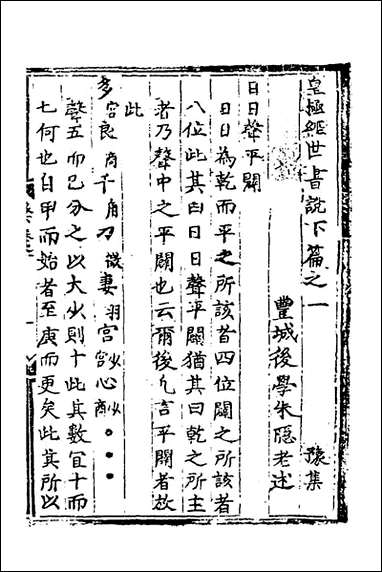 皇極經世書說下篇之一
豫集
豐城後學朱隱老述
日日聲平闢
日日為乾而平之所該者四位闢之所該者
八位此其曰日日聲平闢猶其曰乾之所主
者乃聲中之平闢也云爾後凡言平闢者放
此
多宮良商千角刀徵妻羽宮少宮心少商●●●
聲五而已分之以大少則十此其數宜十而
七何也自甲而始者至庚而更矣此其所以